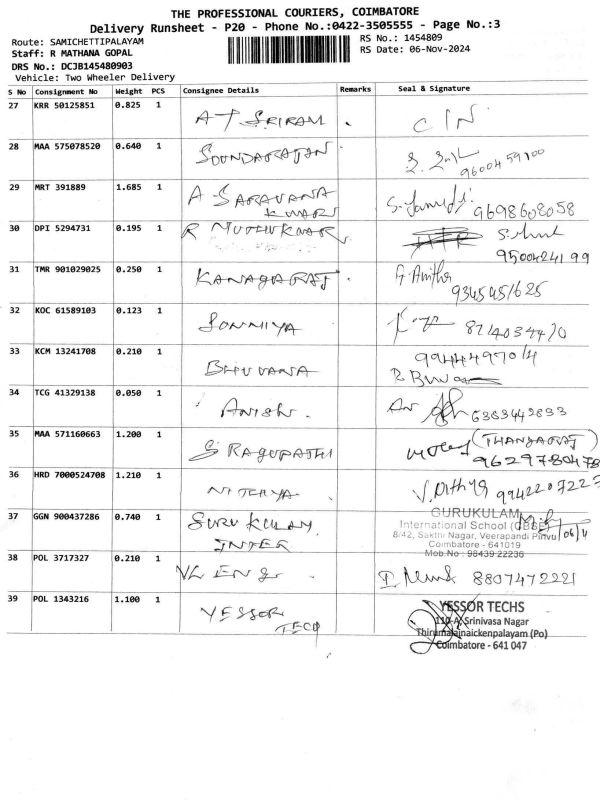 THE PROFESSIONAL COURIERS, COIMBATORE
Delivery Runsheet - P20 - Phone No.:0422-3505555 - Page No.:3
Route: SAMICHETTIPALAYAM
RS No.: 1454809
Staff: R MATHANA GOPAL
RS Date: 06-Nov-2024
DRS No.: DCJB145480903
Vehicle: Two Wheeler Delivery
S No Consignment No Weight PCS Consignee Details Remarks Seal & Signature
27 KRR 50125851 0.825 1 A T SRIRAM . CIN
28 MAA 575078520 0.640 1 SOUNDARAJAN 9600459100
29 MRT 391889 1.685 1 A SARAVANA 9698608058
KUMAR
30 DPI 5294731 0.195 1 R MUTHUKUMAR
9500424199
31 TMR 901029025 0.250 1 KANAGARAJ Anitha
9345451625
32 KOC 61589103 0.123 1 SONNIYA
33 KCM 13241708 0.210 1 BHUVANA
34 TCG 41329138 0.050 1 ANISH . 6383442833
35 MAA 571160663 1.200 1 S RAGUPATHI (THANGARAJ)
9629780478
36 HRD 7000524708 1.210 1 NITHYA V. Nithya 9942207227
37 GGN 900437286 0.740 1 GURUKULAM
INTER
GURUKULAM
International School (CBSE)
8/42, Sakthi Nagar, Veerapandi Pirivu
Coimbatore - 641019
Mob.No : 98439 22236
38 POL 3717327 0.210 1 VL ENG. 8807472221
39 POL 1343216 1.100 1 YESSOR
TECH
YESSOR TECHS
110-A, Srinivasa Nagar
Thirumalainaickenpalayam (Po)
Coimbatore - 641 047